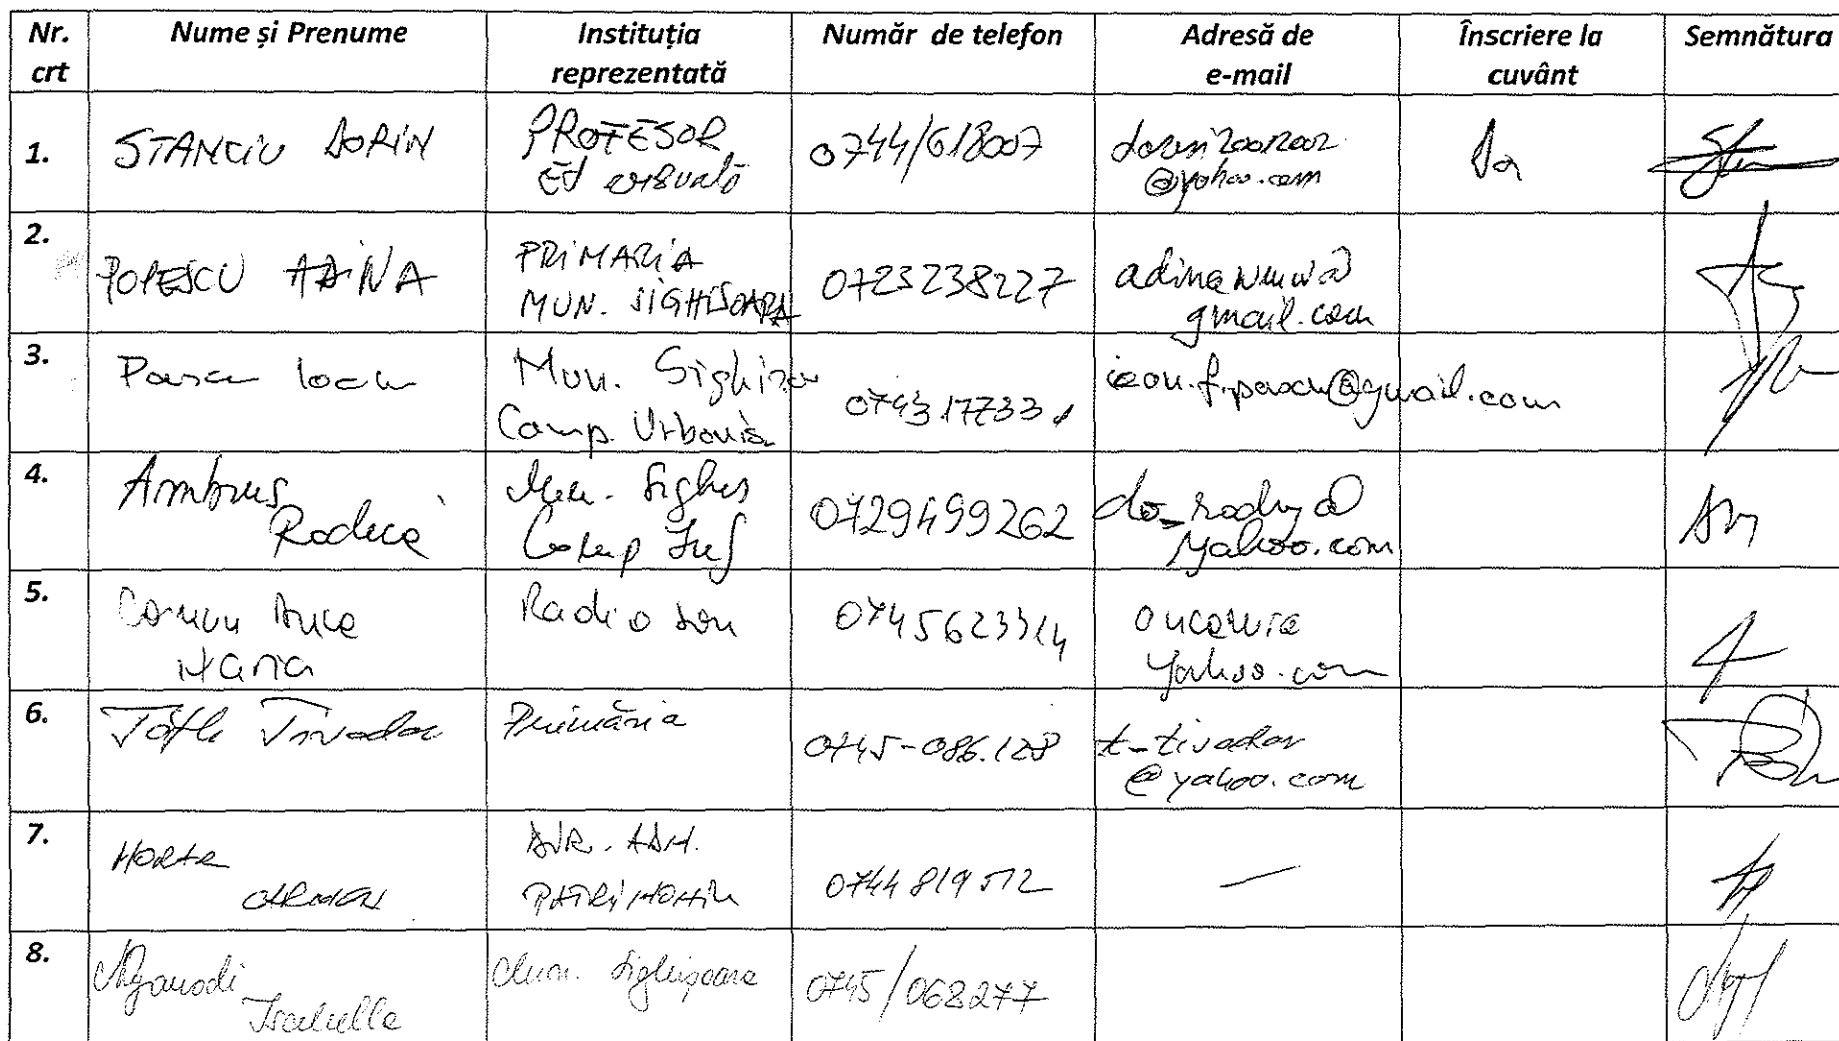 Nr. crt Nume și Prenume Instituția reprezentată Număr de telefon Adresă de e-mail Înscriere la cuvânt Semnătura
1. STANCIU DORIN PROFESOR 0744/618007 dorin20012002 @yahoo.com Da
2. POPESCU ADINA PRIMARIA MUN. SIGHISOARA 0723238227 gmail.com
3. Pascu Ioan Mun. Sighiso Comp. Urbanis 0743177331 ioan.f.pascu@gmail.com
4. Ambrus Rodica Mun. Sighis Comp 0729499262 yahoo.com
5. Maria Radio Son 0745623314 yahoo.com
6. Toth Tivadar Primăria 0745-086.128 t_tivadar @yahoo.com
7. DIR. ADM. PATRIMONIU 0744819512 —
8. Isabella Mun. Sighișoara 0745/068277